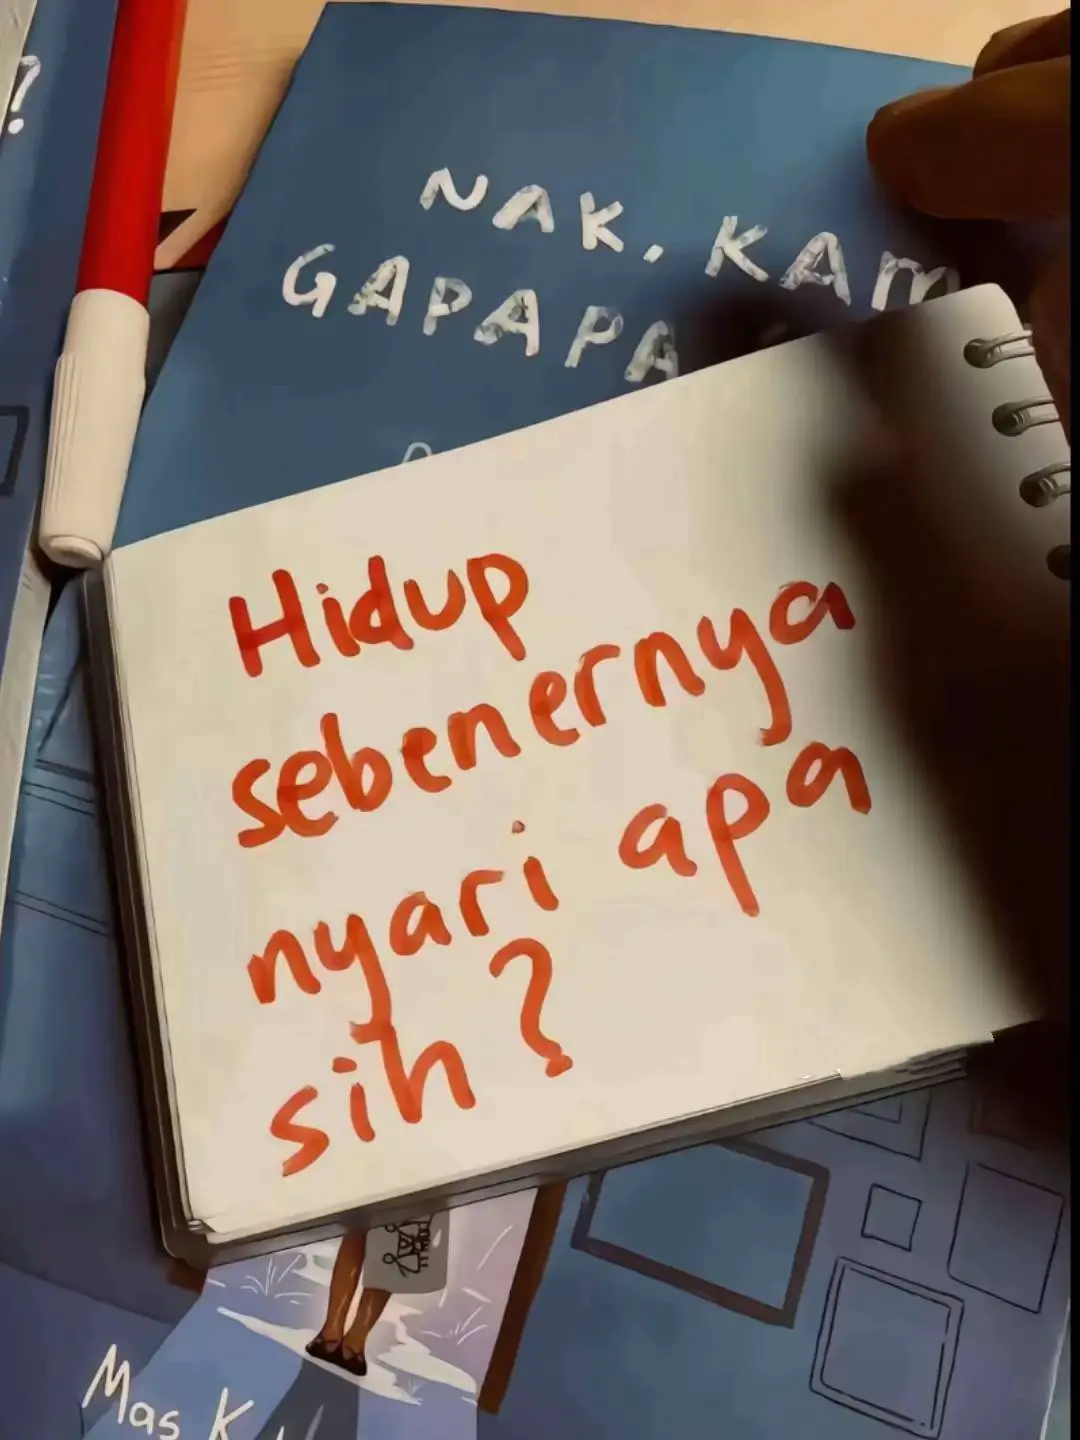 ?
NAK, KAM
GAPAPA
Hidup
sebenernya
nyari apa
sih?
Mas K